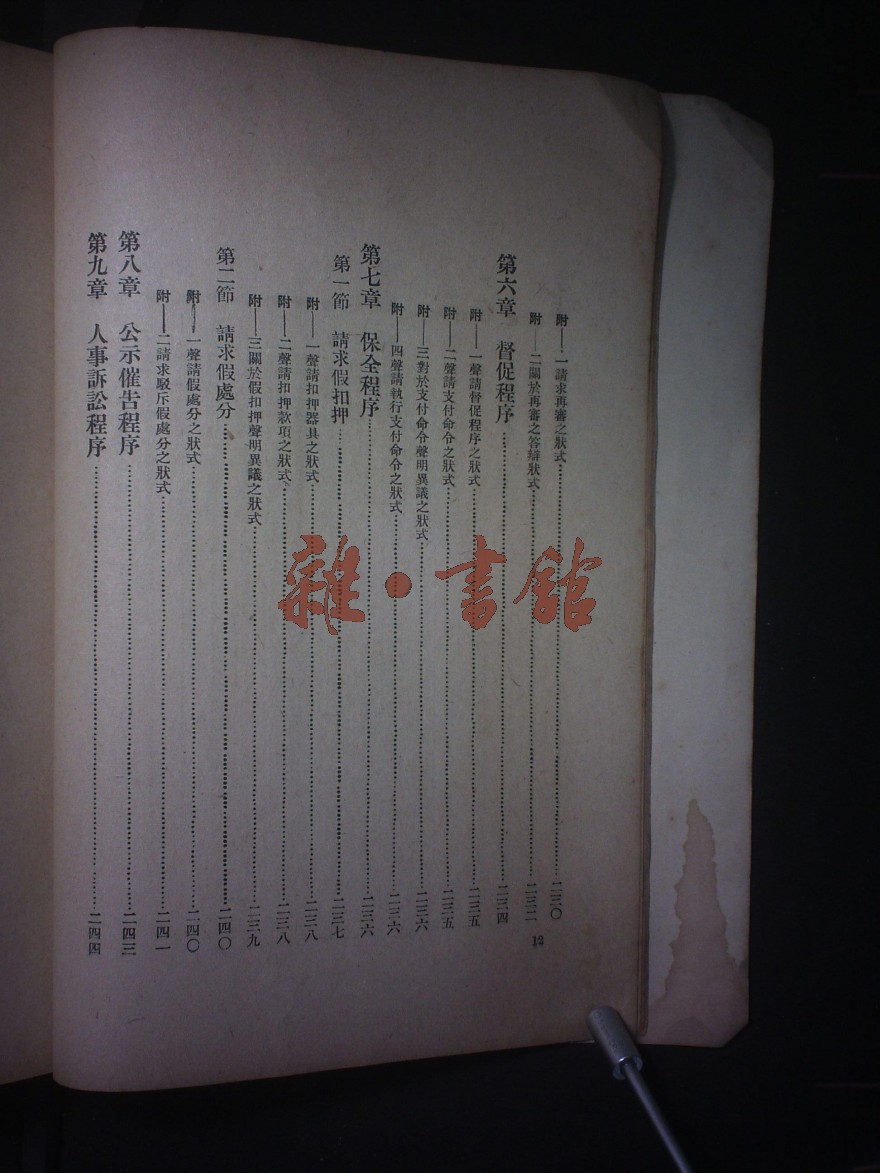 附——一請求再審之狀式……二三〇
附——二關於再審之答辯狀式……二三二
第六章　督促程序……二三四
附——一聲請督促程序之狀式……二三五
附——二聲請支付命令之狀式……二三五
附——三對於支付命令聲明異議之狀式……二三六
附——四聲請執行支付命令之狀式……二三六
第七章　保全程序……二三六
第一節　請求假扣押……二三七
附——一聲請扣押器具之狀式……二三八
附——二聲請扣押款項之狀式……二三八
附——三關於假扣押聲明異議之狀式……二三九
第二節　請求假處分……二四〇
附——一聲請假處分之狀式……二四〇
附——二請求駁斥假處分之狀式……二四一
第八章　公示催告程序……二四三
第九章　人事訴訟程序……二四四
12
雜·書館